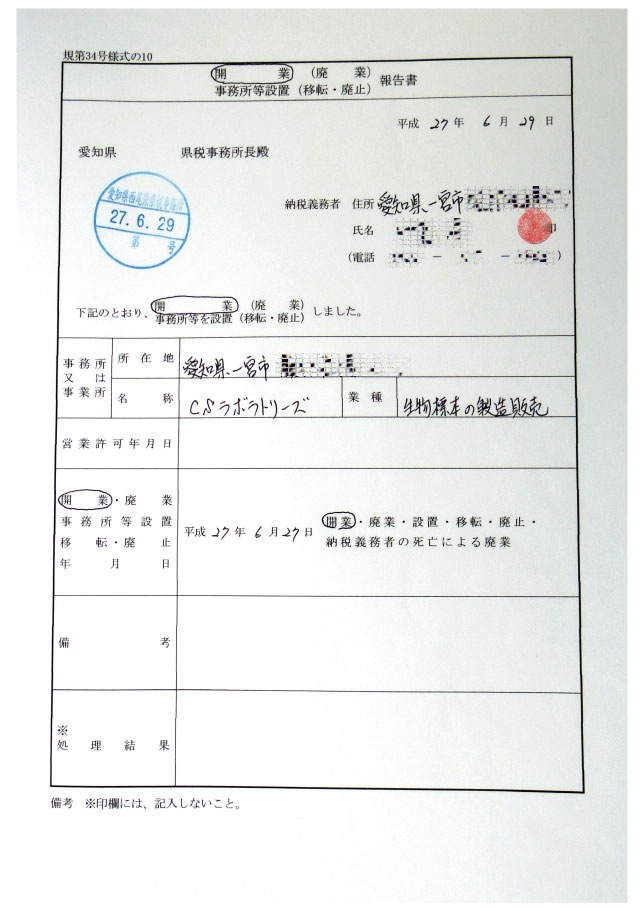 規第34号様式の10
開業 (廃業)
事務所等設置(移転・廃止) 報告書
平成 27 年 6 月 29 日
愛知県 県税事務所長殿
27.6.29
第 号
納税義務者 住所 愛知県一宮市
氏名 印
(電話 - - )
下記のとおり、開業 (廃業) しました。
事務所等を設置(移転・廃止)
事務所又は事業所 所在地 愛知県一宮市
名称 CSラボラトリーズ 業種 生物標本の製造販売
営業許可年月日
開業・廃業
事務所等設置
移転・廃止
年月日
平成 27 年 6 月 27 日
開業・廃業・設置・移転・廃止・
納税義務者の死亡による廃業
備考
※
処理結果
備考 ※印欄には、記入しないこと。